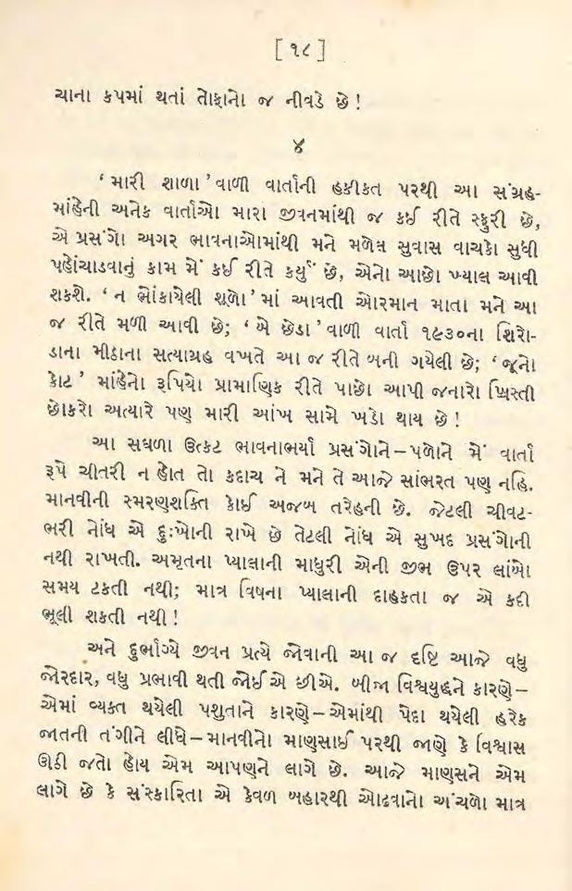 [ ૧૮ ]
ચાના કપમાં થતાં તોફાનો જ નીવડે છે !
૪
‘ મારી શાળા ’ વાળી વાર્તાની હકીકત પરથી આ સંગ્રહ-
માંહેની અનેક વાર્તાઓ મારા જીવનમાંથી જ કઈ રીતે સ્ફુરી છે,
એ પ્રસંગો અગર ભાવનાઓમાંથી મને મળેલ સુવાસ વાચકો સુધી
પહોંચાડવાનું કામ મેં કઈ રીતે કર્યું છે, એનો આછો ખ્યાલ આવી
શકશે. ‘ ન ભોંકાયેલી શૂળો ’ માં આવતી ઓરમાન માતા મને આ
જ રીતે મળી આવી છે; ‘ એ છેડા ’ વાળી વાર્તા ૧૯૩૦ના શિરો-
ડાના મીઠાના સત્યાગ્રહ વખતે આ જ રીતે બની ગયેલી છે; ‘ જૂનો
કોટ ’ માંહેનો રૂપિયો પ્રામાણિક રીતે પાછો આપી જનારો ખ્રિસ્તી
છોકરો અત્યારે પણ મારી આંખ સામે ખડો થાય છે !
આ સઘળા ઉત્કટ ભાવનાભર્યા પ્રસંગોને – પળોને મેં વાર્તા
રૂપે ચીતરી ન હોત તો કદાચ ને મને તે આજે સાંભરત પણ નહિ.
માનવીની સ્મરણશક્તિ કોઈ અજબ તરેહની છે. જેટલી ચીવટ-
ભરી નોંધ એ દુઃખોની રાખે છે તેટલી નોંધ એ સુખદ પ્રસંગોની
નથી રાખતી. અમૃતના પ્યાલાની માધુરી એની જીભ ઉપર લાંબો
સમય ટકતી નથી; માત્ર વિષના પ્યાલાની દાહકતા જ એ કદી
ભૂલી શકતી નથી !
અને દુર્ભાગ્યે જીવન પ્રત્યે જોવાની આ જ દષ્ટિ આજે વધુ
જોરદાર, વધુ પ્રભાવી થતી જોઈએ છીએ. બીજા વિશ્વયુદ્ધને કારણે –
એમાં વ્યક્ત થયેલી પશુતાને કારણે – એમાંથી પેદા થયેલી હરેક
જાતની તંગીને લીધે – માનવીનો માણસાઈ પરથી જાણે કે વિશ્વાસ
ઊડી જતો હોય એમ આપણને લાગે છે. આજે માણસને એમ
લાગે છે કે સંસ્કારિતા એ કેવળ બહારથી ઓઢવાનો અંચળો માત્ર